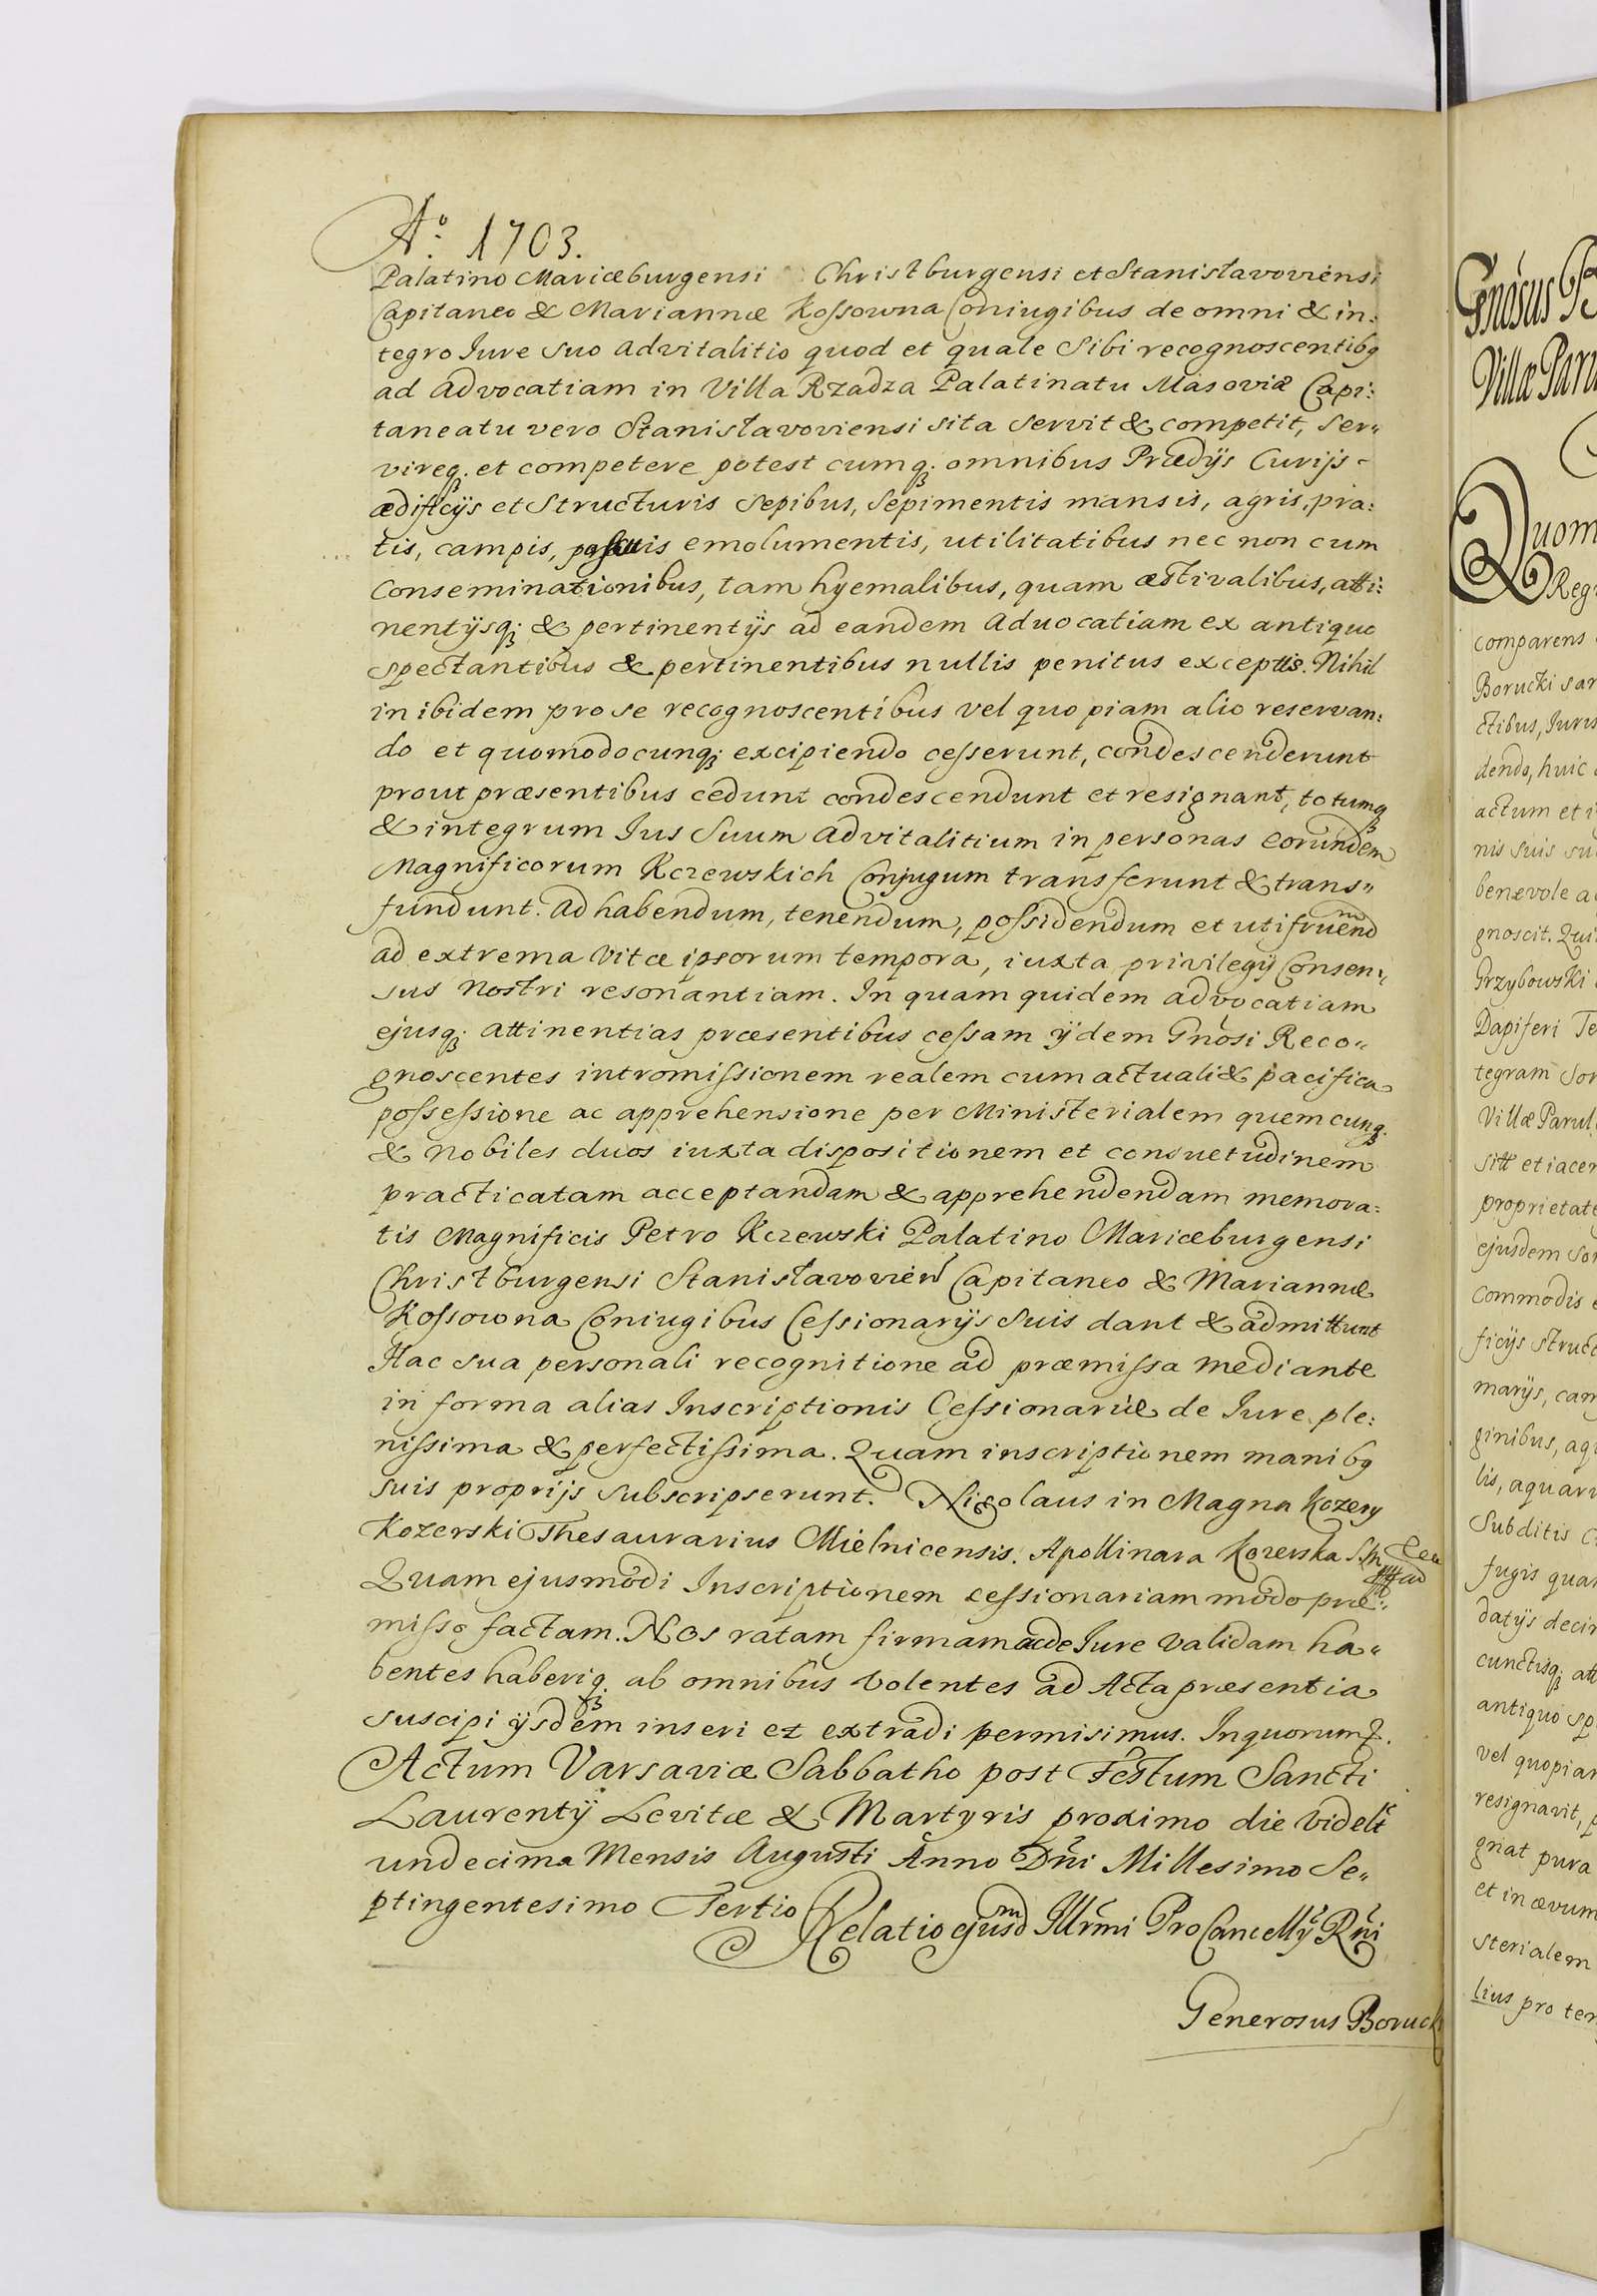 Aº. 1703.
Palatino Mariæburgensi Christburgensi et Stanisłavoviensi
Capitaneo & Mariannæ Kossowna Coniugibus de omni & in:
tegro Iure suo advitalitio quod et quale sibi recognoscentibq
ad advocatiam in Villa Rzadza Palatinatu Masoviæ Capi:
taneatu vero Stanisłavoviensi sita servit & competit, ser„
vireq. et competere potest cumq. omnibus Prædijs Curijs
ædificijs et Structuris Sepibus, Sepimentis mansis, agris, pra:
tis, campis, pascuis emolumentis, utilitatibus nec non cum
Conseminationibus, tam hyemalibus, quam æstivalibus, atti:
nentijsq. & pertinentijs ad eandem Advocatiam ex antiquo
spectantibus & pertinentibus nullis penitus exceptis. Nihil
in ibidem pro se recognoscentibus vel quopiam alio reservan:
do et quomodocunq. excipiendo cesserunt, condescenderunt
prout præsentibus cedunt condescendunt et resignant, totumq
& integrum Ius Suum advitalitium in personas eorundem
Magnificorum Kczewskich Conjugum transferunt & trans„
fundunt. Ad habendum, tenendum, possidendum et utifruend̃m
ad extrema vitæ ipsorum tempora, iuxta privilegij Consen„
sus Nostri resonantiam. In quam quidem advocatiam
ejusq. attinentias præsentibus cessam ijdem Gnosi Reco„
gnoscentes intromissionem realem cum actuali & pacifica
possessione ac apprehensione per Ministerialem quemcunq.
& Nobiles duos iuxta dispositionem et consuetudinem
practicatam acceptandam & apprehendendam memora=
tis Magnificis Petro Kczewski Palatino Mariæburgensi
Christburgensi Stanisłavovień Capitaneo & Mariannæ
Kossowna Coniugibus Cessionarijs suis dant & admittunt
Hac sua personali recognitione ad præmissa mediante
in forma alias Inscriptionis Cessionariæ de Iure ple:
nissima & perfectissima. Quam inscriptionem manibq
suis proprijs subscripserunt. Nicolaus in Magna Kozery
Kozerski Thesaurarius Mielnicensis. Apollinara Kozerska
Quam ejusmodi Inscriptionem cessionariam modo præ„
misso factam. Nos ratam firmam ac de Iure validam ha„
bentes haberiq. ab omnibus volentes ad Acta præsentia
suscipi ijsdem inseri et extradi permisimus. In quorum
Actum Varsaviæ Sabbatho post Festum Sancti
Laurentij Levitæ & Martyris proximo die videlt
undecima Mensis Augusti Anno Dni Millesimo Se„
ptingentesimo Tertio Relatio ejusdm Illrmi ProCancellỹ Rni
Generosus Boruck
Gnosus
Villæ Paru
Quom
Reg
comparens
Borucki sar
ctibus, Iuris
dendo, huic
actum et i
nis suis su
benevole a
gnoscit. Qui
Grzybowski
Dapiferi Te
tegram sor
Villæ Parul
sitt et iacen
proprietate
ejusdem sor
commodis
ficijs struct
marijs, cam
ginibus, aq
lis, aquaru
Subditis
fugis quar
datijs decir
cunctisq. att
antiquo sp
vel quopiam
resignavit, p
gnat pura
et in ævum
sterialem
lius pro ter